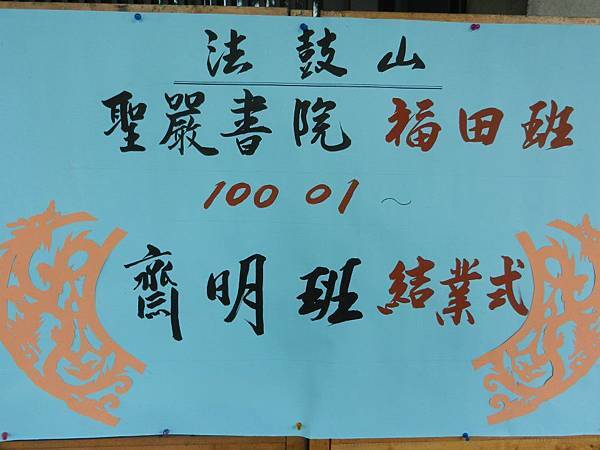 法鼓山
聖嚴書院 福田班
100 01 ~
齋明班結業式